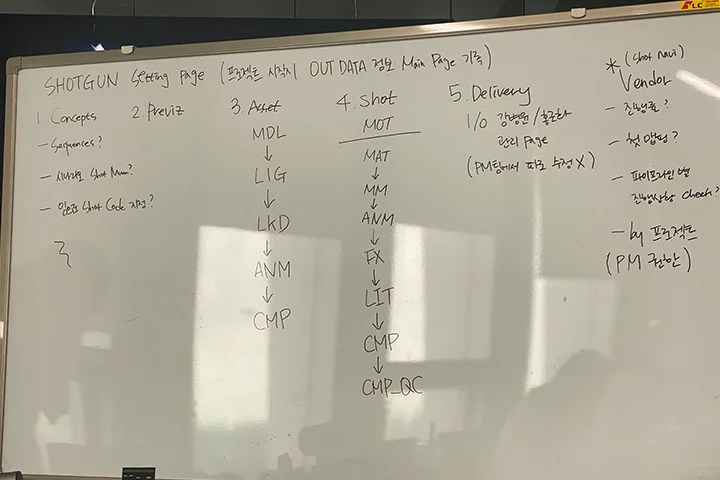 SHOTGUN Setting Page (프로젝트 시작시 OUT DATA 정보 Main Page 기록)
1. Concepts
- Sequences?
- 시나리오 Shot Num?
- 임으로 Shot Code 지정?
2. Previz
3. Asset
MDL
↓
LIG
↓
LKD
↓
ANM
↓
CMP
4. Shot
MOT
MAT
↓
MM
↓
ANM
↓
FX
↓
LIT
↓
CMP
↓
CMP_QC
5. Delivery
I/O
관리 Page
(PM팀에서 따로 수정 X)
* (Shot Navi)
Vendor
- 진행률?
- 첫 맵핑?
- 파이프라인 별
진행상황 Check?
- by 프로젝트
(PM 권한)
LC